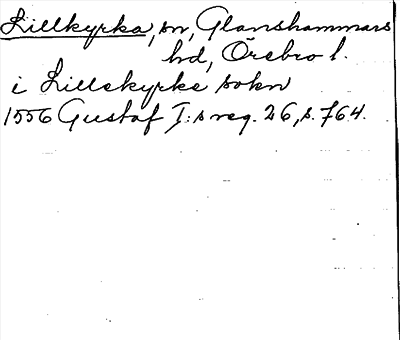 Lillkyrka, sn, Glanshammars
hd, Örebro l.
i Lillekyrke sokn
1556 Gustaf I:s reg. 26, s. 764.